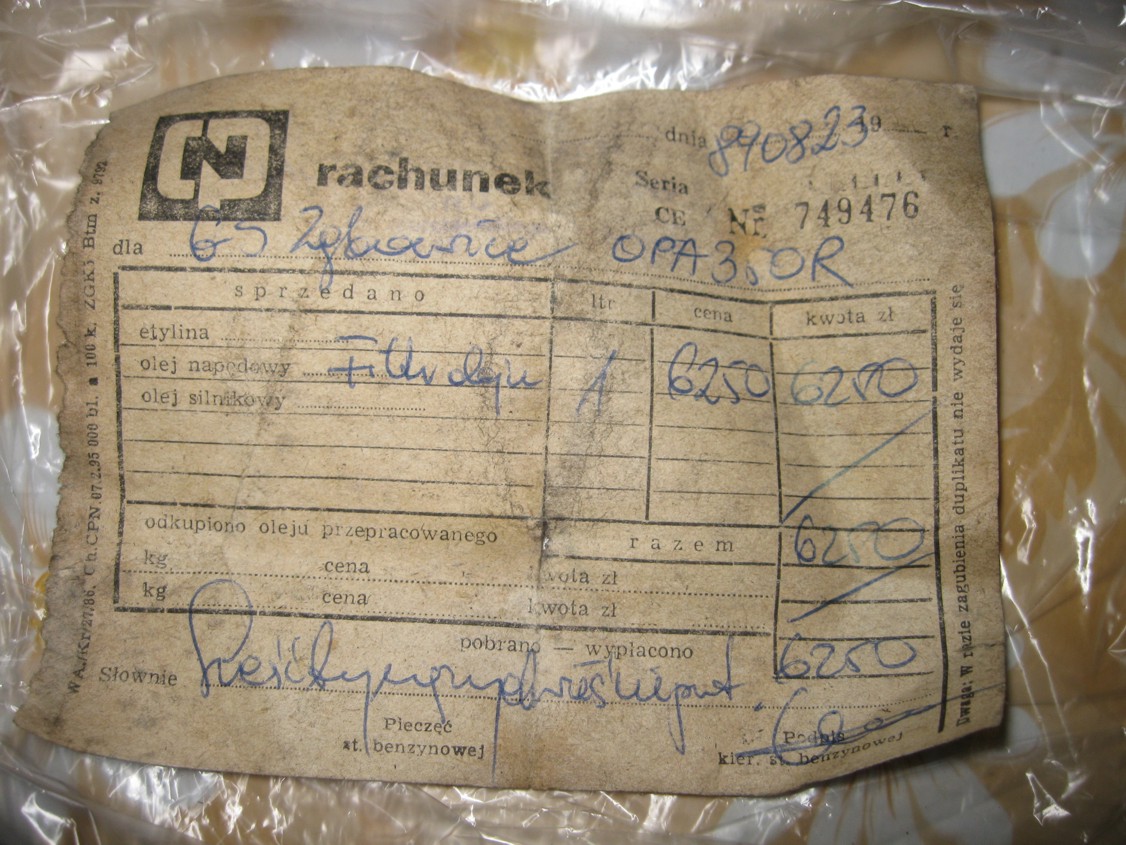 CPN
rachunek
dnia 890823 19 r.
Seria
CE Nr 749476
dla GS Ząbkowice OPA 350R
sprzedano ltr cena kwota zł
etylina
olej napędowy Filtr oleju 1 6250 6250
olej silnikowy
odkupiono oleju przepracowanego razem 6250
kg cena kwota zł
kg cena kwota zł
pobrano — wypłacono 6250
Słownie Sześć tysięcy dwieście
Pieczęć
st. benzynowej
Podpis
kier. st. benzynowej
Uwaga: W razie zagubienia duplikatu nie wydaje się
CPN.07.2.95 000 bl. a 100 k. ZGK3 Btm z. 9792